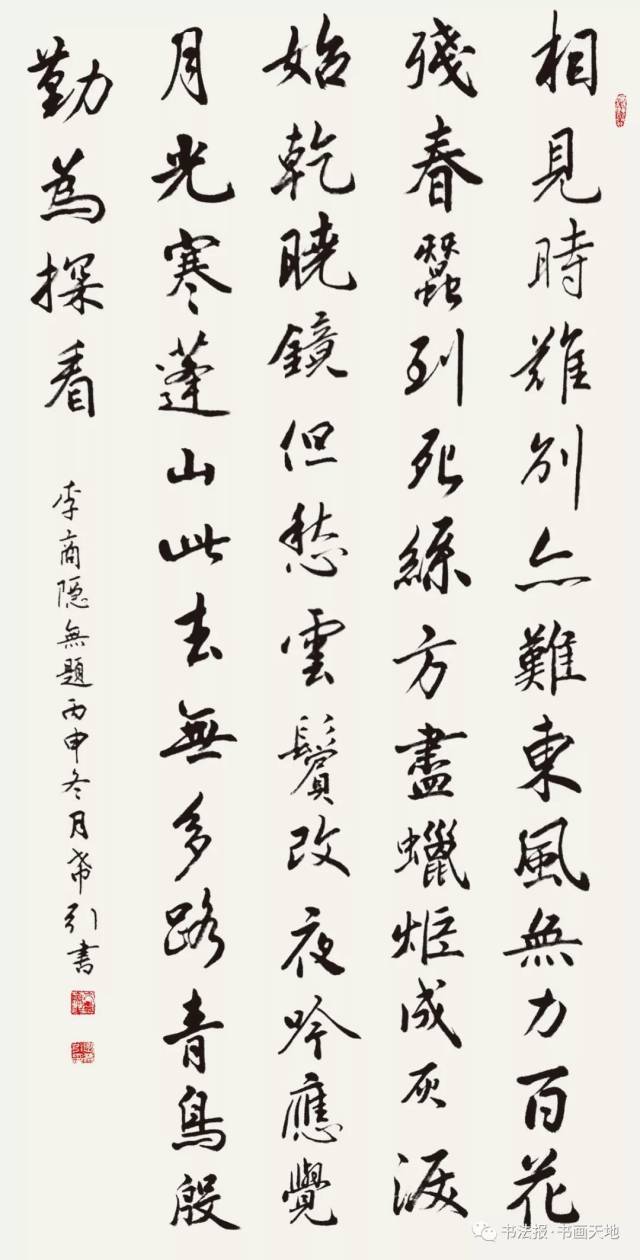 相見時難別亦難東風無力百花
殘春蠶到死絲方盡蠟炬成灰淚
始乾曉鏡但愁雲鬢改夜吟應覺
月光寒蓬山此去無多路青鳥殷
勤為探看
李商隱無題丙申冬月希引書
书法报·书画天地